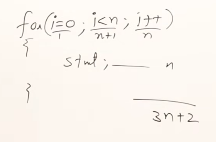 for(i=0; i<n; i++)
1 n+1 n
{
stmt; — n
}
3n+2